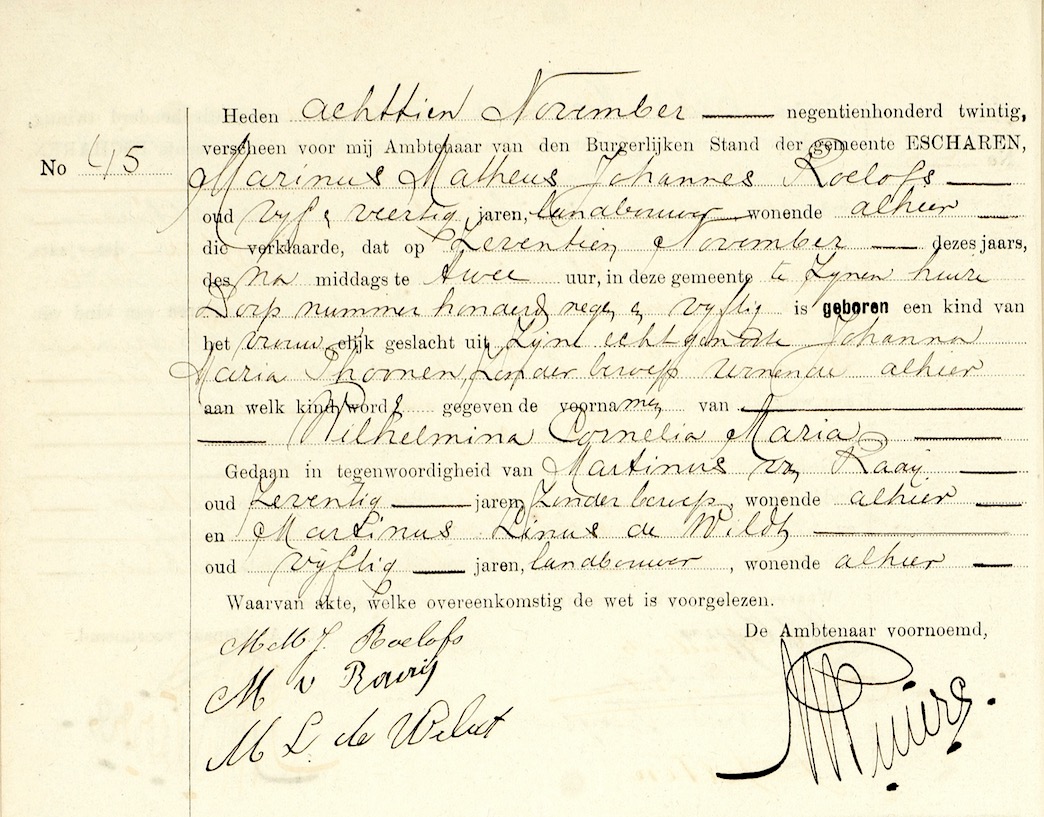 Heden achttien November negentienhonderd twintig,
verscheen voor mij Ambtenaar van den Burgerlijken Stand der gemeente ESCHAREN,
No 45
Marinus Matheus Johannes Roelofs
oud vyf & veertig jaren, landbouwer wonende alhier
die verklaarde, dat op zeventien November dezes jaars,
des na middags te twee uur, in deze gemeente te zynen huize
Dorp nummer honderd negen & vyftig is geboren een kind van
het vrouwelijk geslacht uit zyne echtgenoote Johanna
Maria Thoonen, zonder beroep wonende alhier
aan welk kind wordt gegeven de voornamen van
Wilhelmina Cornelia Maria
Gedaan in tegenwoordigheid van Martinus van Raaij
oud zeventig jaren, zonder beroep, wonende alhier
en Martinus Linus de Wildt
oud vijftig jaren, landbouwer, wonende alhier
Waarvan akte, welke overeenkomstig de wet is voorgelezen.
De Ambtenaar voornoemd,
M M J. Roelofs
M v Raaij
M L. de Wildt